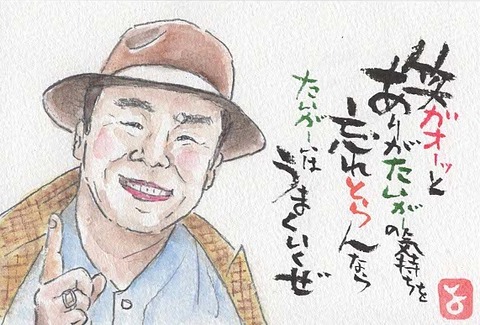 笑ガオーッと
ありがたいがーの気持ちを
忘れとらんなら
たいがーは
うまくいくぜ